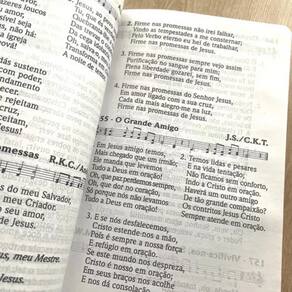 azeres loucos
em havia
Da
Transforma
A noite de
dás sustento
com poder,
ndamento,
er.
rejeitam
ceitam,
Jesus!
omessas R.K.C./
s do meu Salvador,
o meu Criador.
o seu amor,
de Jesus.
us, meu Mestre.
2. Firme nas promessas não irei falhar,
Vindo as tempestades a me consternar;
Pelo Verbo eterno eu hei de trabalhar,
Firme nas promessas de Jesus!
3. Firme nas promessas sempre vejo assim
Purificação no sangue para mim;
Plena liberdade gozarei, sem fim,
Firme nas promessas de Jesus!
4. Firme nas promessas do Senhor Jesus,
Em amor ligado com a sua cruz,
Cada dia mais alegro-me na luz,
Firme nas promessas de Jesus!
55 - O Grande Amigo J.S./C.K.T.
Em Jesus amigo temos,
Mais chegado que um irmão;
Ele manda que levemos
Tudo a Deus em oração!
Oh, que paz perdemos sempre,
Oh, que dor no coração,
Só porque nós não levamos
Tudo a Deus em oração!
2. Temos lidas e pesares
E na vida tentação;
Não ficamos sem conforto,
Indo a Cristo em oração.
Haverá um outro amigo
De tão grande compaixão?
Os contritos Jesus Cristo
Sempre atende em oração.
3. E se nós desfalecemos,
Cristo estende-nos a mão,
Pois é sempre a nossa força
E refúgio em oração.
Se este mundo nos despreza,
Cristo é nosso em oração;
Em seus braços nos acolhe
E nos dá consolação.